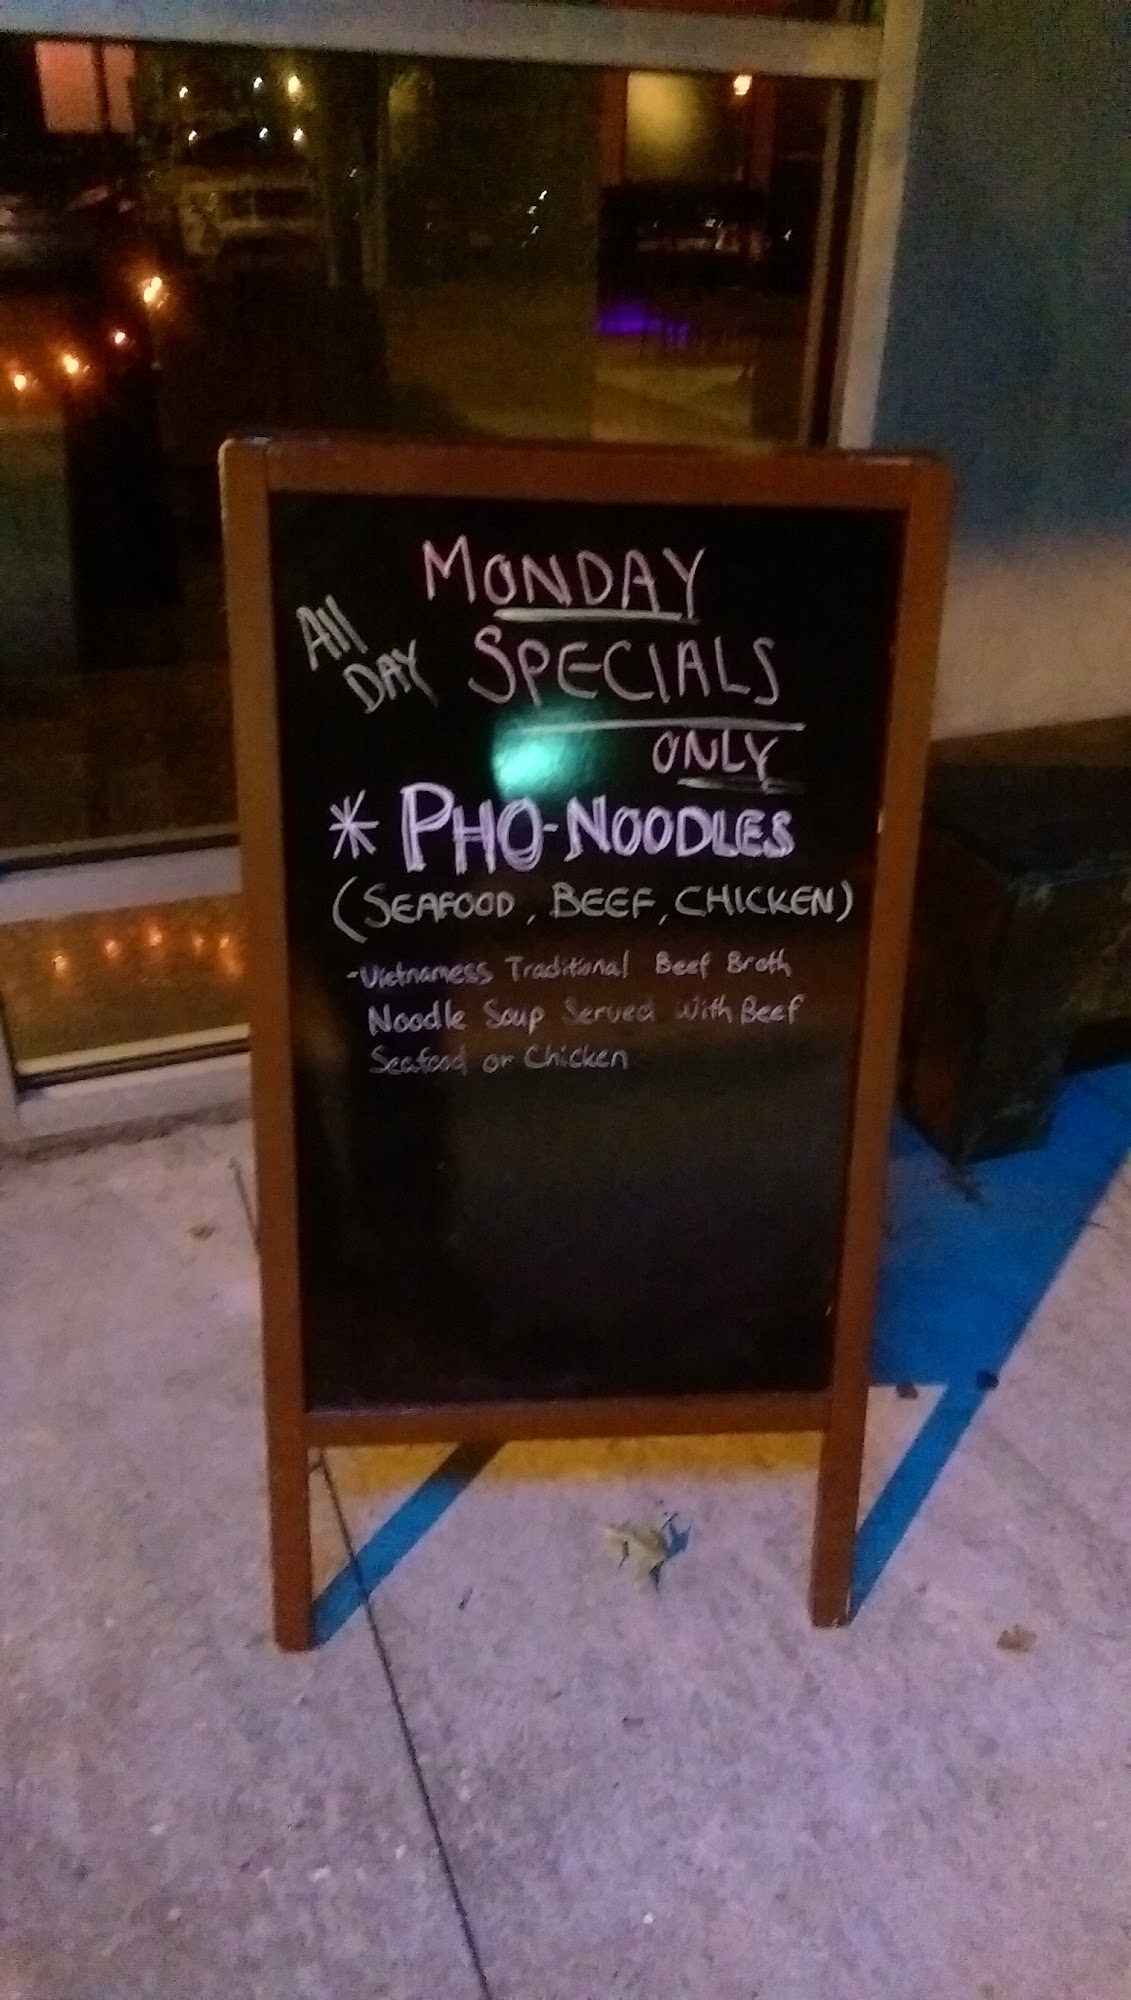 MONDAY
All
DAY
SPECIALS
ONLY
* PHO-NOODLES
(SEAFOOD, BEEF, CHICKEN)
-Vietnamess Traditional Beef Broth
Noodle Soup Served With Beef
Seafood or Chicken